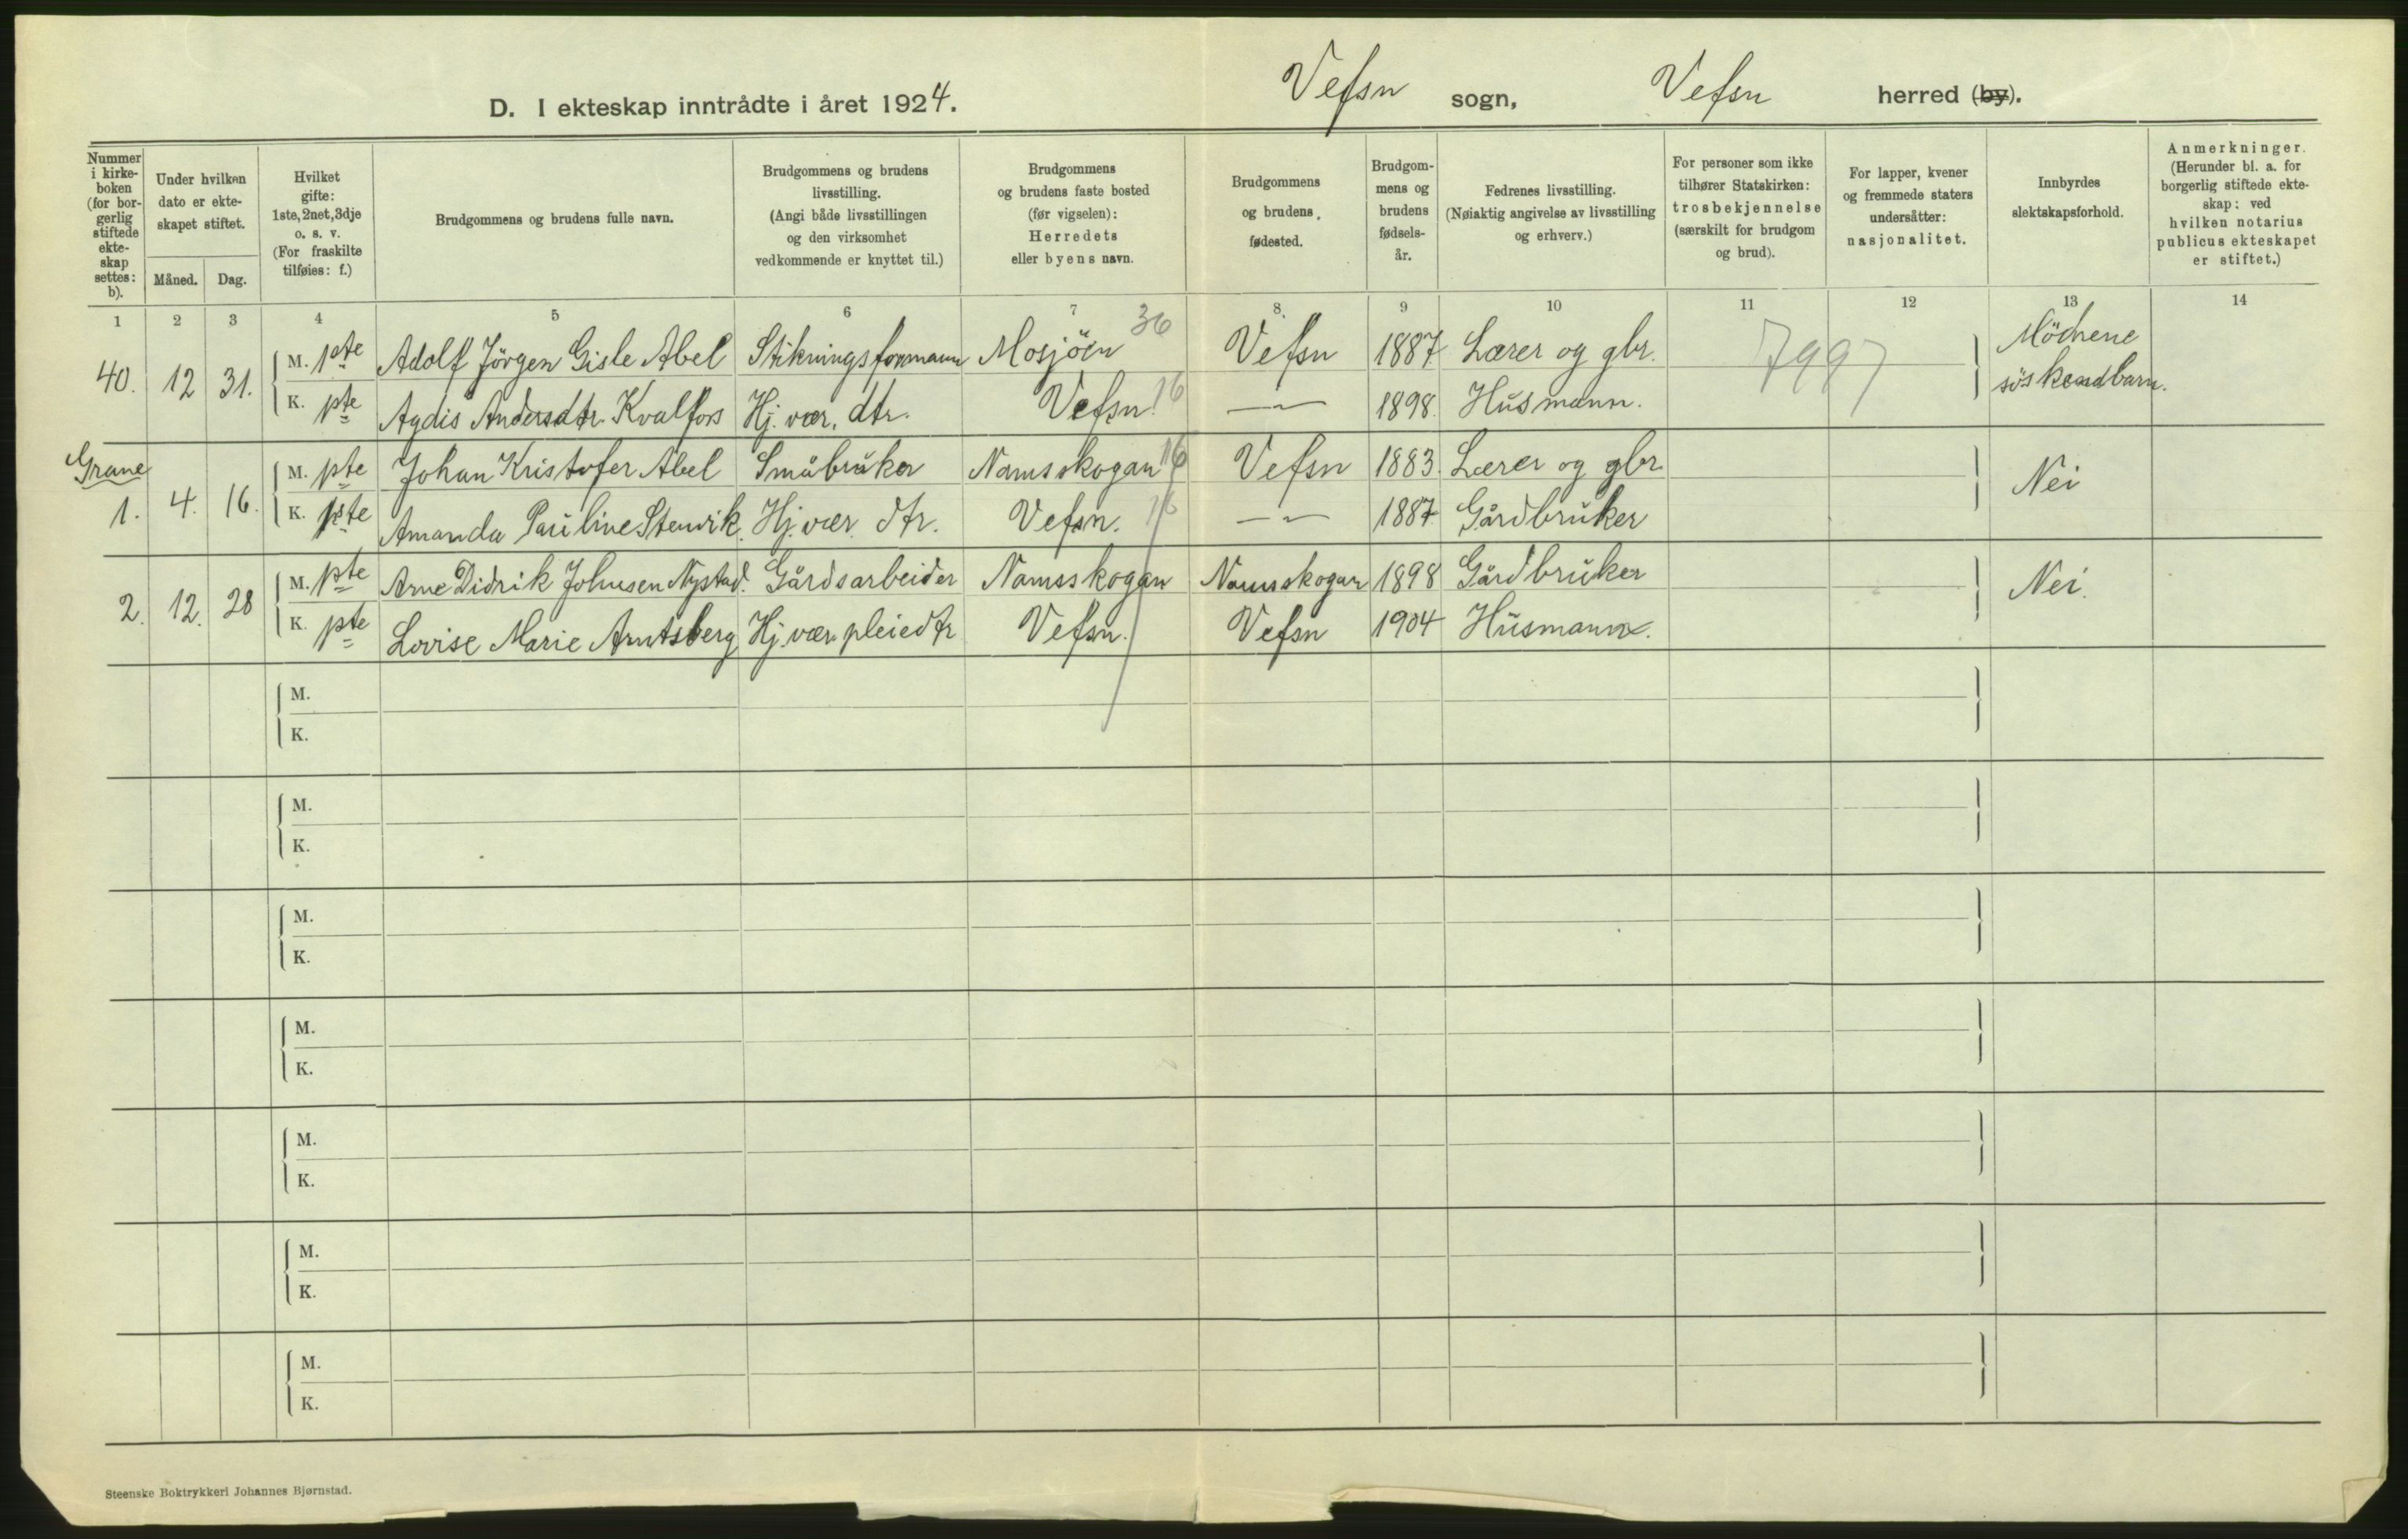 D. I ekteskap inntrådte i året 1924. Vefsn sogn, Vefsn herred (by).
Nummer i kirkeboken (for borgerlig stiftede ekteskap settes: b).
Under hvilken dato er ekteskapet stiftet.
Måned. Dag.
Hvilket gifte: 1ste, 2net, 3dje o. s. v. (For fraskilte tilføies: f.)
Brudgommens og brudens fulle navn.
Brudgommens og brudens livsstilling. (Angi både livsstillingen og den virksomhet vedkommende er knyttet til.)
Brudgommens og brudens faste bosted (før vigselen): Herredets eller byens navn.
Brudgommens og brudens fødested.
Brudgommens og brudens fødselsår.
Fedrenes livsstilling. (Nøiaktig angivelse av livsstilling og erhverv.)
For personer som ikke tilhører Statskirken: trosbekjennelse (særskilt for brudgom og brud).
For lapper, kvener og fremmede staters undersåtter: nasjonalitet.
Innbyrdes slektskapsforhold.
Anmerkninger. (Herunder bl. a. for borgerlig stiftede ekteskap: ved hvilken notarius publicus ekteskapet er stiftet.)
1 2 3 4 5 6 7 8 9 10 11 12 13 14
40. 12 31. M. 1ste Adolf Jörgen Gisle Abel Stikningsformann Mosjöen 36 Vefsn 1887 Lærer og gbr. 7997 Mödrene
K. 1ste Agdis Andersdtr. Kvalfors Hj. vær. dtr. Vefsn. 16 —"— 1898. Husmann. söskendbarn.
Grane
1. 4. 16. M. 1ste Johan Kristofer Abel Småbruker Namsskogan 16 Vefsn 1883. Lærer og gbr. Nei
K. 1ste Amanda Pauline Stenvik. Hj. vær. dtr. Vefsn. 16 —"— 1887 Gårdbruker
2. 12. 28 M. 1ste Arne Didrik Johnsen Nystad. Gårdsarbeider Namsskogan Namsskogan 1898 Gårdbruker Nei.
K. 1ste Lovise Marie Arntsberg Hj. vær. pleiedtr Vefsn. Vefsn 1904 Husmann.
M.
K.
M.
K.
M.
K.
M.
K.
M.
K.
M.
K.
M.
K.
Steenske Boktrykkeri Johannes Bjørnstad.